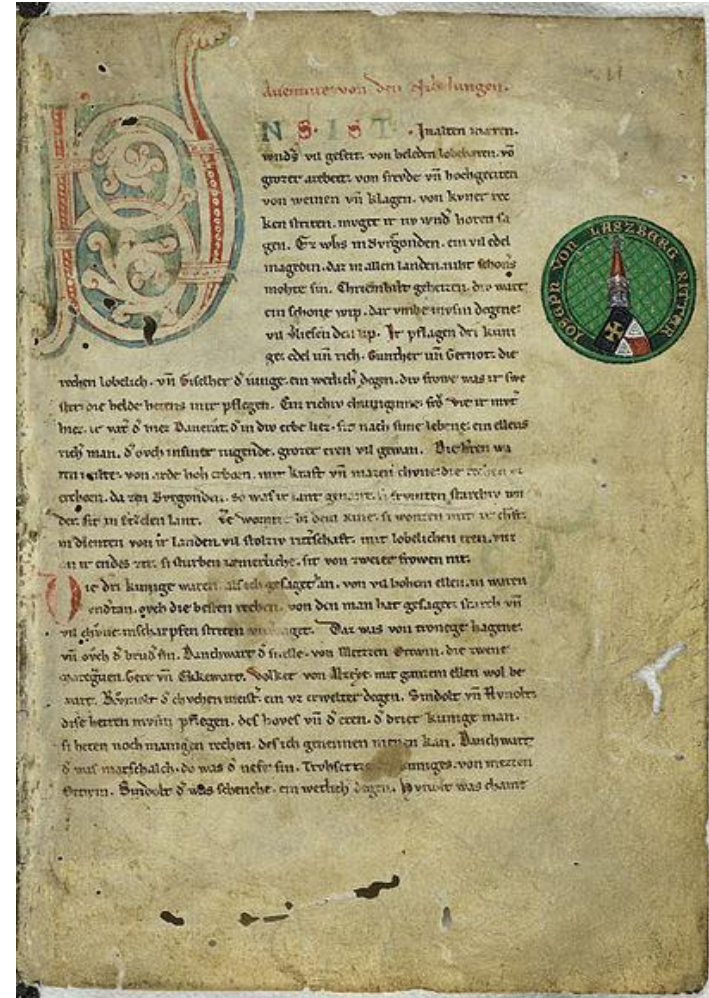 Auenture von den Nibelungen.
VNS. IST. Jn alten mæren.
wnds vil geseit. von heleden lobebæren. vō
grozer arebeit. von frevde vñ hochgeciten
von weinen vñ klagen. von kvner rec
ken striten. mvget ir nv wnd horen sa
gen. Ez whs in Bvrgonden. ein vil edel
magedin. daz in allen landen. niht schoners
mohte sin. Chriemhilt geheizen. div wart
ein schone wip. dar vmbe mvsin degene
vil Uliesen den lip. Jr pflagen dri kuni
ge. edel vñ rich. Gunther vñ Gernot. die
rechen lobelich. vñ Giselher d iunge. ein wetlich degen. div frowe was ir swe
ster. die helde hetens in ir pflegen. Ein richiv chuniginne. frō Vte ir mvt
hiez. ir vat d hiez Dancrat. d in div erbe liez. sit nach sime lebene. ein ellens
rich man. d ovch in siner iugende. grozer eren vil gewan. Die hren wa
ren milte. von arde hoh erborn. mit kraft vñ mazen chvne. die rechen vz
erchorn. da zen Bvrgonden. so was ir lant genant. si frvmten starchiv wn
der. sit in Etzelen lant. Ze wormz bi dem Rine. si wonten mit ir chft.
in dienten von ir landen. vil stolziv ritschaft. mit lobelichen eren. vnz
an ir endes zit. si sturben iæmerliche. sit von zweier frowen nit.
Die dri kunige waren. als ich gesaget han. von vil hohem ellen. in waren
vndtan. ovch die besten rechen. von den man hat gesaget. starch vñ
vil chvne. in scharpfen striten vnverzaget. Daz was von tronege hagene.
vñ ovch d brud sin. Danchwart d snelle. von Metzen Ortwin. die zwene
marcgven. Gere vñ Ekkewart. Volker von Alzeye. mit ganzem ellen wol be
wart. Rvmolt d chvchenmeist. ein vz erwelter degen. Sindolt vñ Hvnolt.
dise herren mvsin pflegen. des hoves vñ d eren. d drier kunige man.
si heten noch manigen rechen. des ich genennen nienen kan. Danchwart
d was marschalch. do was d nefe sin. Trvhsetze kuniges. von mezzen
Ortwin. Sindolt d was schenche. ein wetlich degen. Hvnolt was chamr
IOSEPH VON LASZBERG RITTER